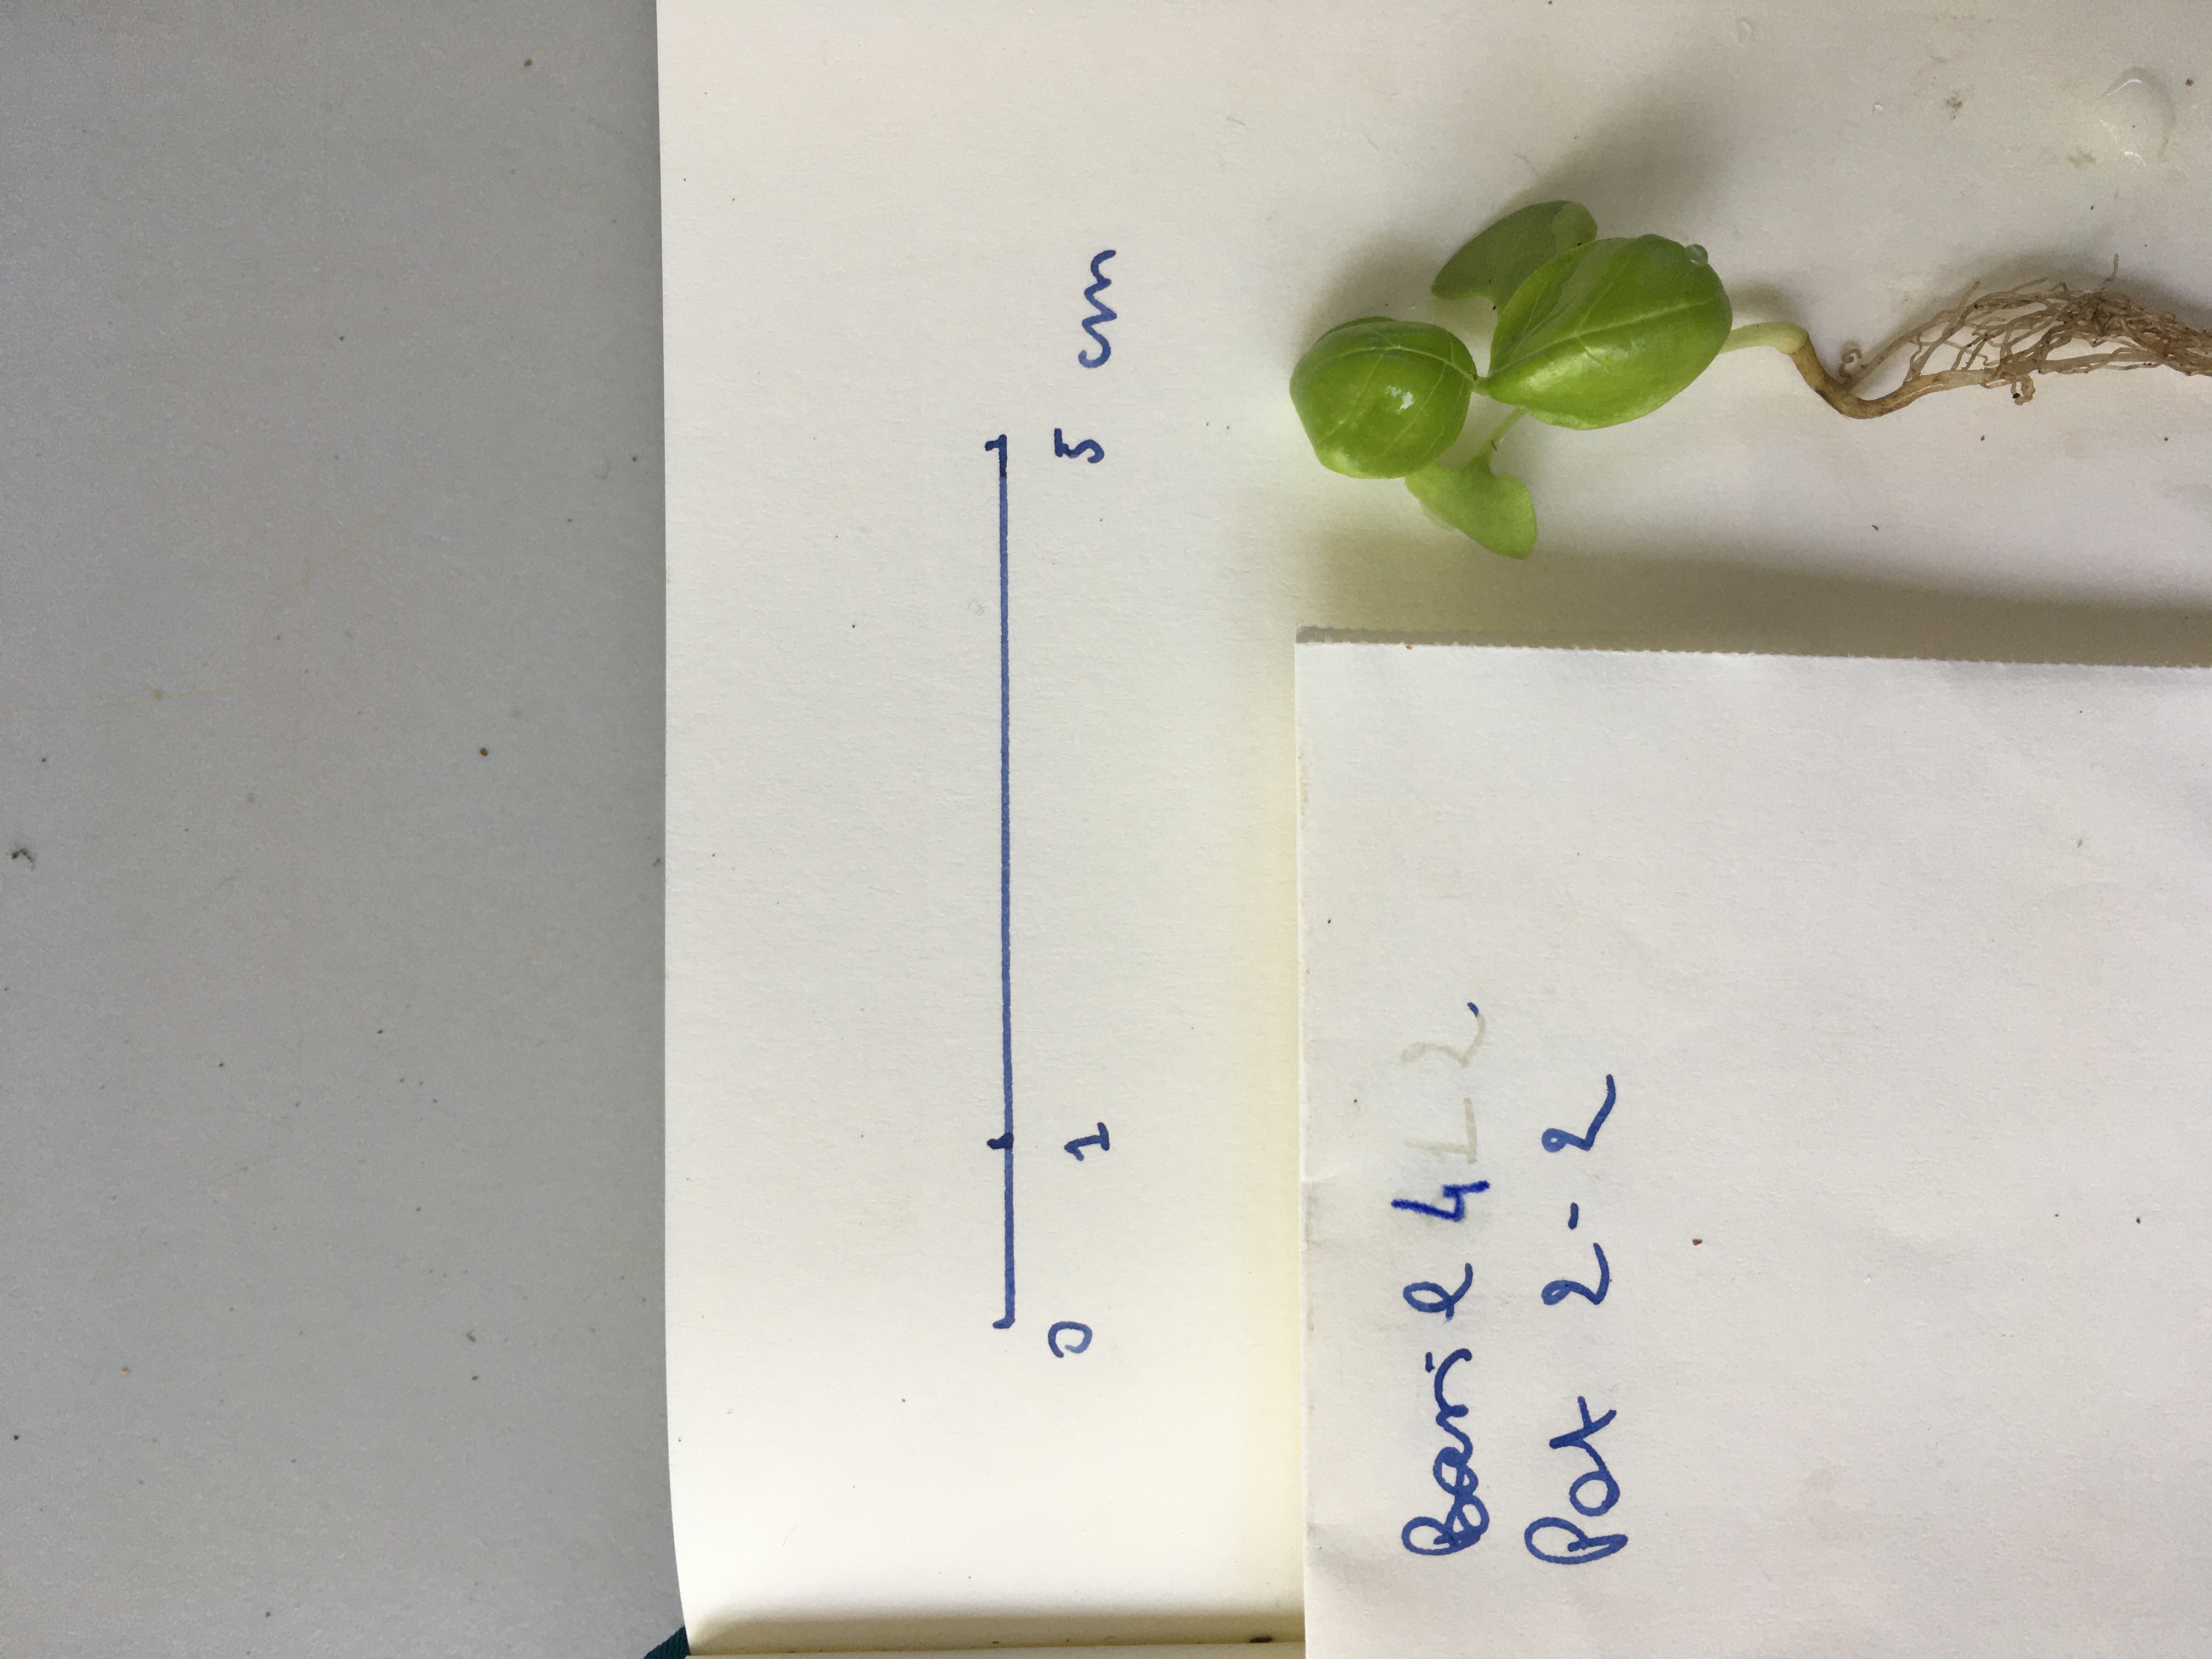 0 1 5 cm
Basil 4
Pot 2-2